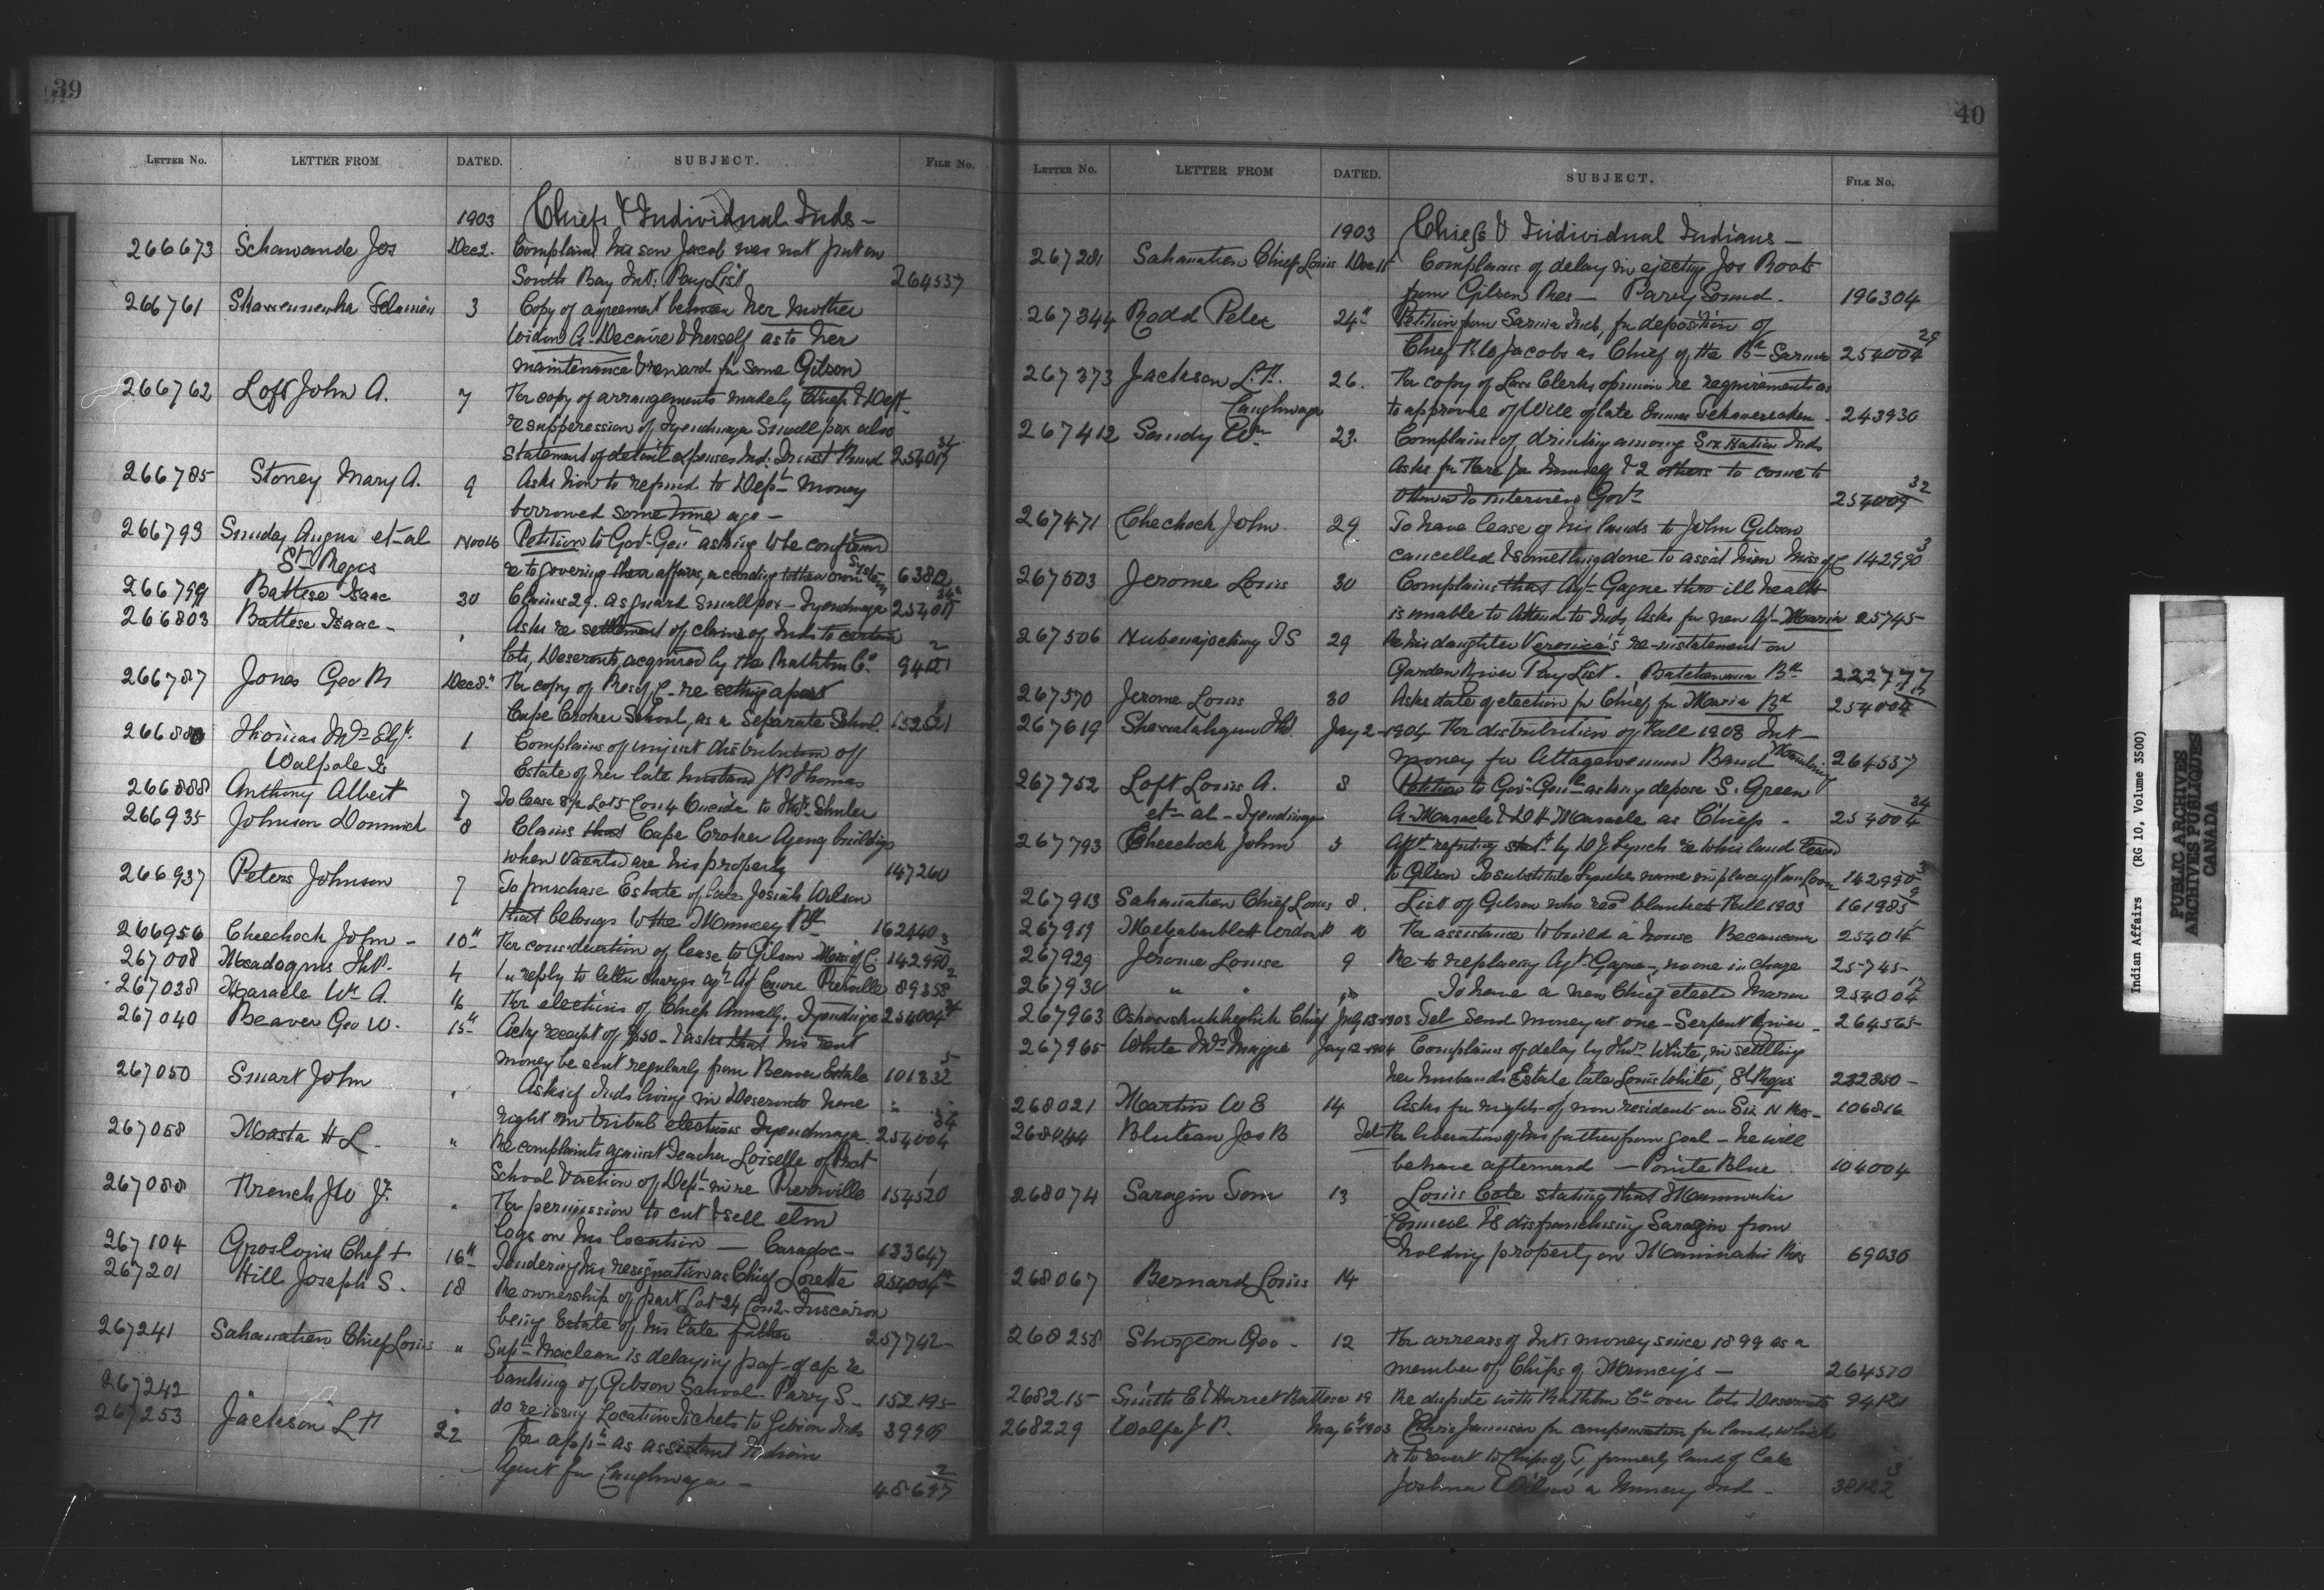 39
LETTER No. LETTER FROM DATED. SUBJECT. FILE No.
1903 Chiefs & Individual Inds —
266673 Schawande Jos Dec 2. Complains his son Jacob was not put on
South Bay Int: Pay List 264537
266761 3 Copy of agreement between her mother
widow A. Decaire & herself as to her
maintenance & reward for same Gibson
266762 Loft John A. 7 For copy of arrangements made by Chief & Dept
re suppression of Tyendinaga Small pox also
Statement of detail expenses Ind: Trust Fund 254017 34
266785 Stoney Mary A. 9 Asks how to refund to Dept money
borrowed some time ago —
266793 Sunday Angus et al Nov 16 Petition to Gov. Gen asking to be
St Regis re to governing their affairs, according to their own system 6381
266799 Battese Isaac 30 Claims 29. as guard Small pox — Tyendinaga 254017
266803 Battese Isaac — " Asks re settlement of claims of Inds to certain
lots, Deseronto, acquired by the Rathbun Co 94121 2
266787 Jones Geo Dec 8" For copy of re setting apart
Cape Croker School, as a Separate School. 152621
266880 Thomas Mrs 1 Complains of unjust distribution of
Walpole Is Estate of her late husband Thomas
266888 Anthony Albert 7 To lease Lot 5 Con 4 Oneida to
266935 Johnson Dominick 8 Claims that Cape Croker Agency buildings
when vacated are his property 147260
266937 Peters Johnson 7 To purchase Estate of late Josiah Wilson
that belongs to the Muncey 162440
266956 Cheechock John — 10" For consideration of lease to Gilson Miss of C. 142990 3
267008 4 In reply to letter charges agt Agt Comire Pierreville 89358 2
267038 Maracle Wm A. 16 For elections of Chiefs Annually. Tyendinaga 254004 34
267040 Beaver Geo W. 15" Ackg receipt of $50 — & asks that his rent
money be sent regularly from Beaver Estate 101832 5
267050 Smart John " Asks if Inds living in Deseronto have
right in tribal elections Tyendinaga — 254004 34
267058 Masta H L. " Re complaints against Teacher Loiselle of Prot
School & action of Dept in re Pierreville 154520 1
267088 French J W Jr. " For permission to cut & sell elm
logs on his location — Caradoc — 133647
267104 Groslouis Chef 16" Tendering his resignation as Chief Lorette 254004
267201 Hill Joseph S. 18 Re ownership of part Lot 24 Con 2 — Tuscarora
being Estate of his late father 257742
267241 Sahanatien Chief Louis " Supt Maclean is delaying of re
banking of Gibson School Parry S — 152195
267242 " do re issue Location Tickets to Gibson Inds 39909
267253 Jackson L 22 For appt as assistant Indian
Agent for Caughnawaga — 48697 2
40
LETTER No. LETTER FROM DATED. SUBJECT. FILE No.
1903 Chiefs & Individual Indians —
267281 Sahanatien Chief Louis Dec 15 Complains of delay in ejecting Jos Roots
from Gibson Res — Parry Sound. 196304
267344 Rodd Peter 24" Petition from Sarnia Inds, for deposition of
Chief Jacobs as Chief of the Bd Sarnia 254004 29
267373 Jackson L. 26. For copy of Law Clerks opinion re requirements as
Caughnwaga to approval of Will of late 243930
267412 Sandy Wm 23. Complains of drinking among Six Nation Inds
Asks for Fare for himself & 2 others to come to
Ottawa to interview Govt 254009 32
267471 Chechock John 29 To have lease of his lands to John Gibson
cancelled & something done to assist him Miss of C 142990 3
267503 Jerome Louis 30 Complains that Agt Gagne thro ill health
is unable to attend to Inds Asks for new Agt — Maria 25745
267506 29 Re his daughter Veronica's re-instatement on
Garden River Pay List — Batchewana Bd 222777
267570 Jerome Louis 30 Asks date of election for Chief for Maria Bd 254004 17
267619 Shewatahgun Thd. Jany 2 — 1904 For distribution of Fall 1903 Int —
money for Attagewenum Band 264537
267752 Loft Louis A. 8 Petition to Gov. Genl asking depose S. Green
et — al — Tyendinaga A. Maracle & D H Maracle as Chiefs — 254004 34
267793 Cheechock John 5 Afft refuting statt by D J Lynch re to his land leased
to Gilson To substitute Lynches name in place of Van Loon 142990 3
267913 Sahanatien Chief Louis 8. List of Gibson who recd blankets Fall 1903 161985
267919 10 For assistance to build a house Becancour 254014
267929 Jerome Louise 9 Re to replacing Agt Gagne —, no one in charge 25745 —
267930 " " To have a new Chief elected Maria 254004 17
267963 Chief July 13 — 1903 Tel Send money at once — Serpent River — 264565 —
267965 White Mrs Maggie Jany 12 — 1904 Complains of delay by Thos. White, in settling
her husbands Estate late Louis White, St Regis 232850 —
268021 Martin W E 14 Asks for rights of non residents on Six N Res — 106816
268044 Bluteau Jos B Tel For liberation of his father from goal — he will
behave afterward — Pointe Blue 104004
268074 Saragin Tom 13 Louis Cote stating that Maniwaki
Council is disfranchising Saragin from
holding property on Maniwaki Res 69030
268067 Bernard Louis 14
268258 Shurgeon Geo — 12 For arrears of Int. money since 1899 as a
member of Chips of Muncey's — 264510
268215 Smith E & Harriet Battese 19 Re dispute with Rathbun Co over lots Deseronto 94121
268229 Wolfe J P. May 6 1903 Chris Jamison for compensation for land which
is to revert to Chips of T, formerly land of late
Joshua Wilson a Muncey Ind — 38122 3
Indian Affairs (RG 10, Volume 3500)
PUBLIC ARCHIVES
ARCHIVES PUBLIQUES
CANADA